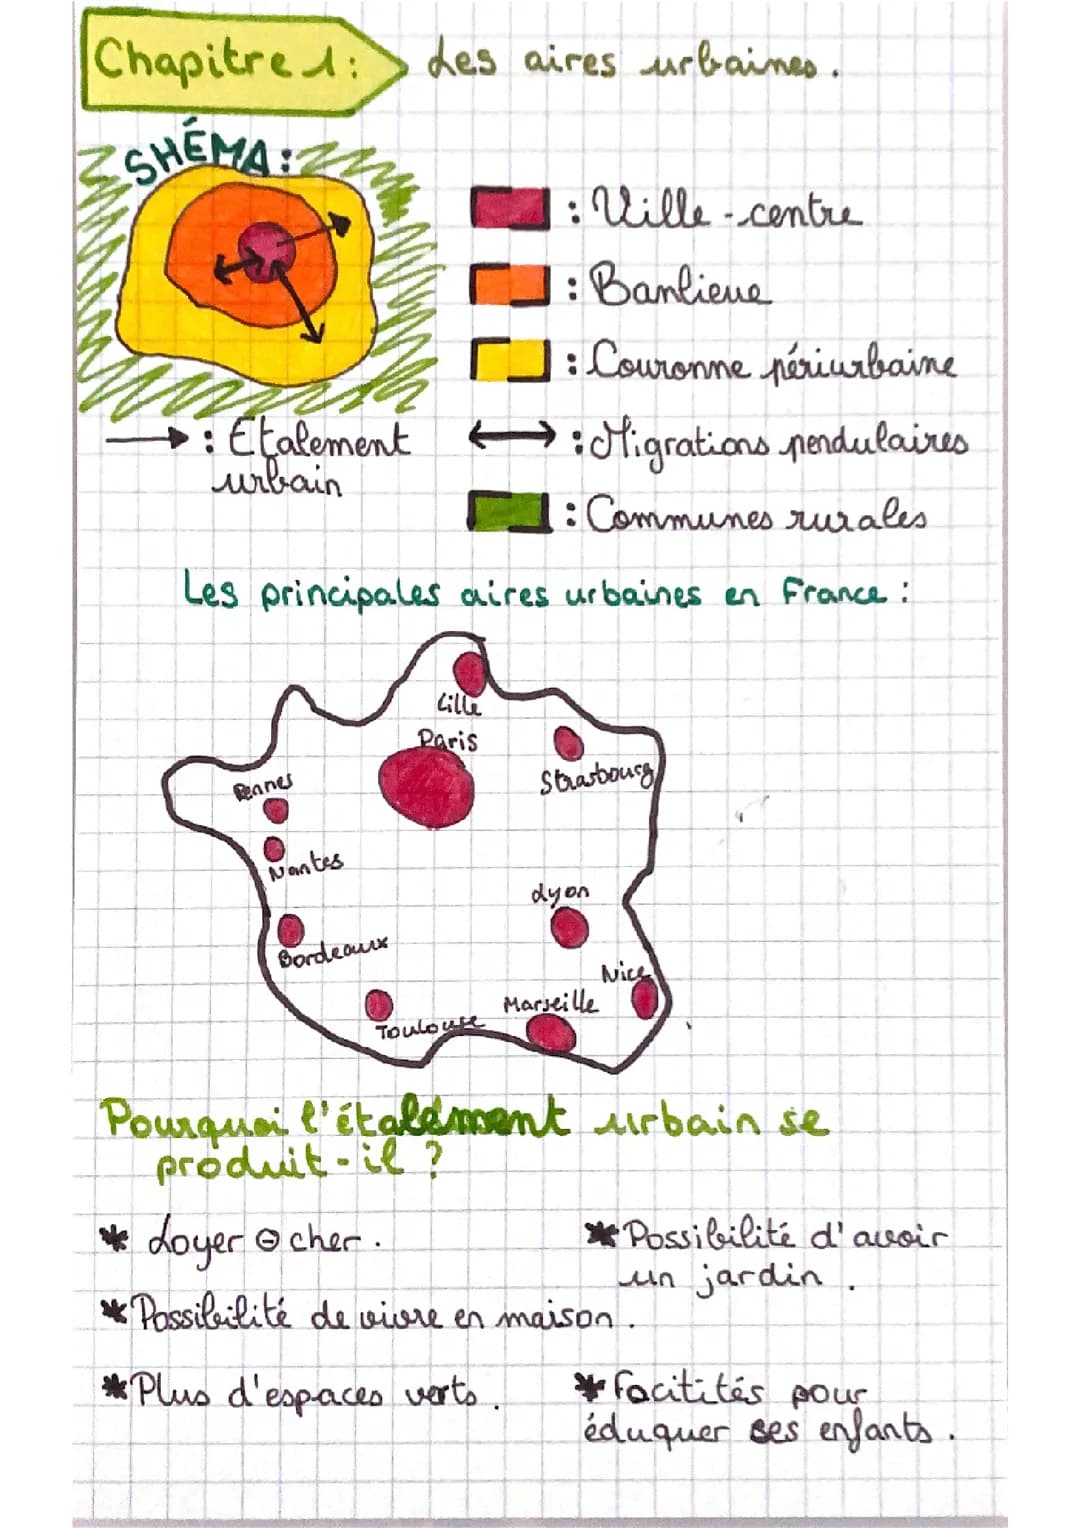 Chapitre 1: Les aires urbaines.
SHÉMA:
: Ville-centre
: Banlieue
: Couronne périurbaine
: Etalement
urbain
: Migrations pendulaires
: Communes rurales
Les principales aires urbaines en France :
Lille
Paris
Strasbourg
Rennes
Nantes
Lyon
Bordeaux
Nice
Marseille
Toulouse
Pourquoi l'étalement urbain se
produit-il ?
* Loyer ⊖ cher.
* Possibilité d'avoir
un jardin.
* Possibilité de vivre en maison.
* Plus d'espaces verts.
* Facitités pour
éduquer ses enfants.